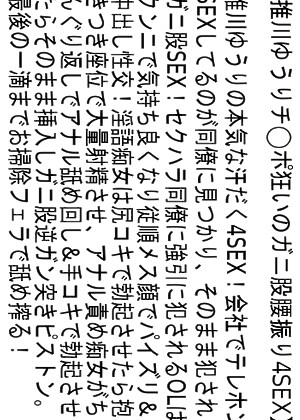 推川ゆうりチ◯ポ狂いのガニ股腰振り4SEX
推川ゆうりの本気な汗だく4SEX！会社でテレホン
SEXしてるのが同僚に見つかり、そのまま犯され
ガニ股SEX！セクハラ同僚に強引に犯されるOLは
クンニで気持ち良くなり従順メス顔でパイズリ&
中出し性交！淫語痴女は尻コキで勃起させたら抱
きつき座位で大量射精させ、アナル責め痴女がち
んぐり返しでアナル舐め回し&手コキで勃起させ
たらそのまま挿入しガニ股逆ガン突きピストン。
最後の一滴までお掃除フェラで舐め搾る！